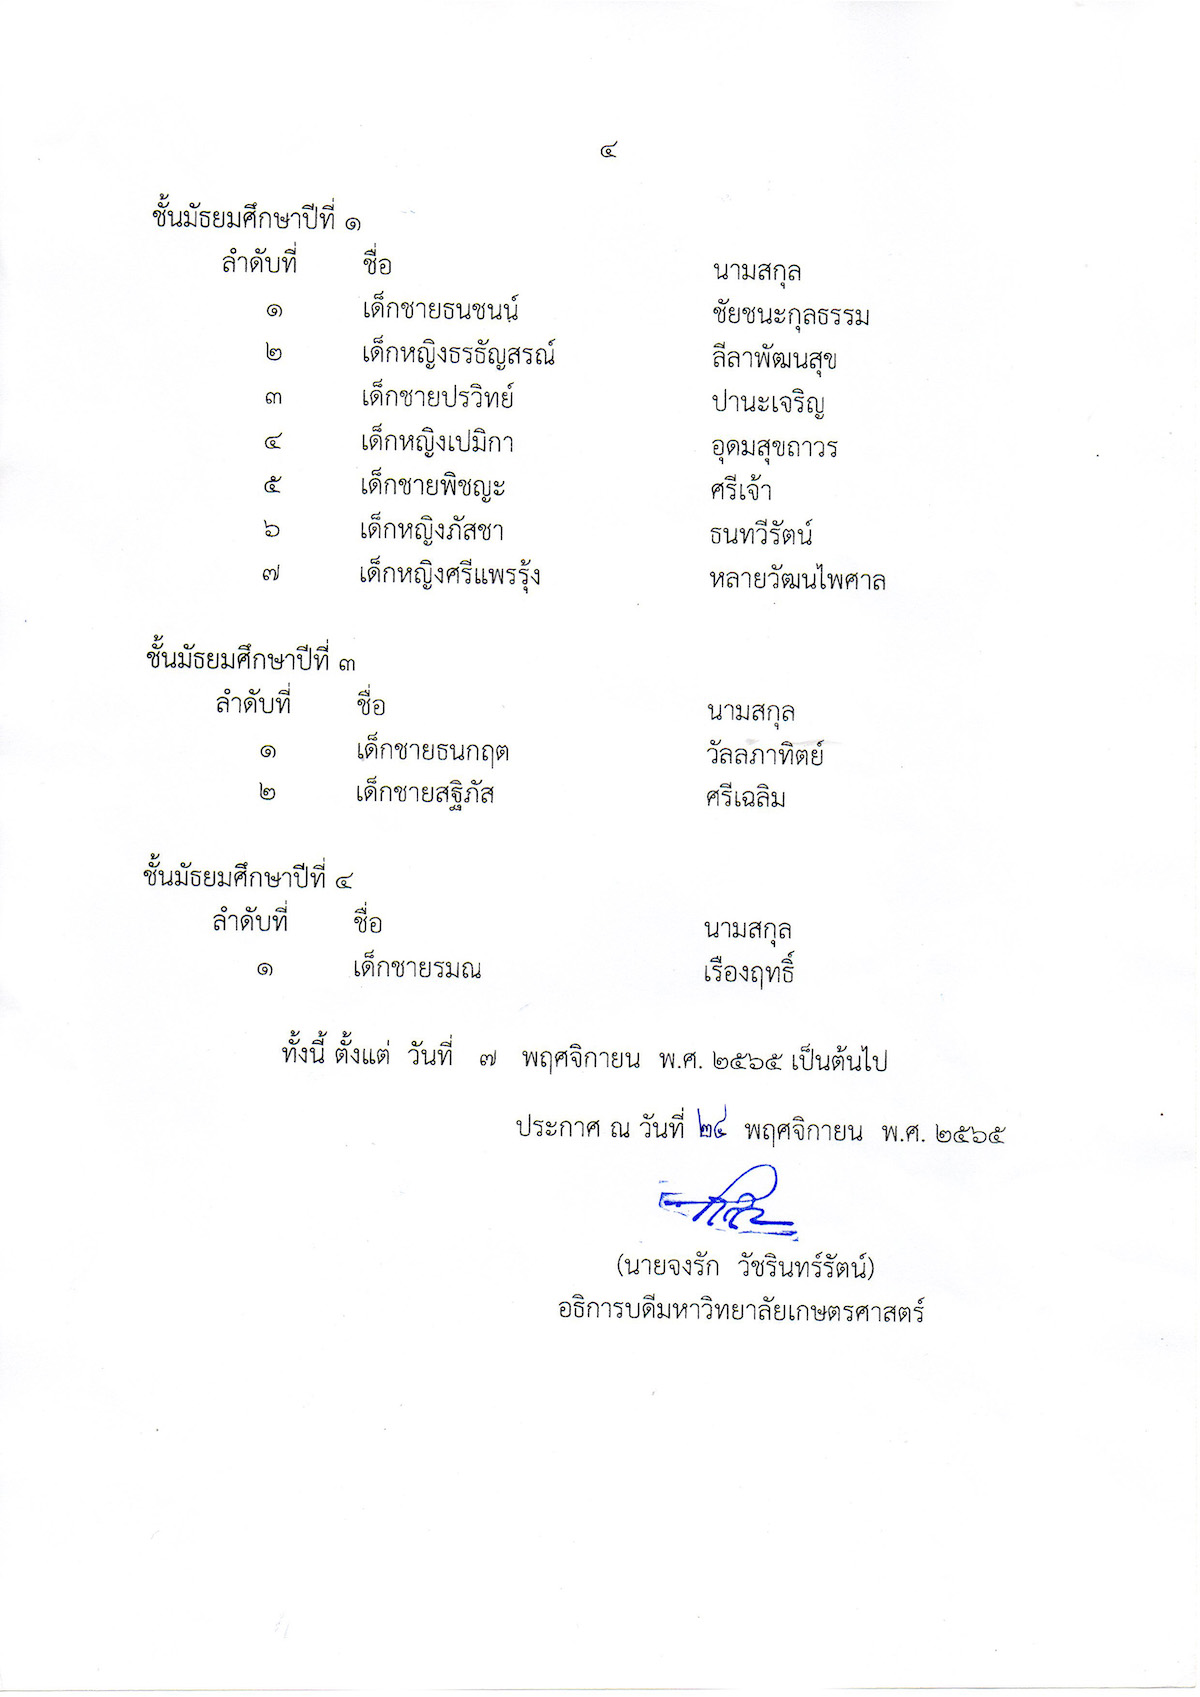 ๔
ชั้นมัธยมศึกษาปีที่ ๑
ลำดับที่ ชื่อ นามสกุล
๑ เด็กชายธนชนน์ ชัยชนะกุลธรรม
๒ เด็กหญิงธรธัญสรณ์ ลีลาพัฒนสุข
๓ เด็กชายปรวิทย์ ปานะเจริญ
๔ เด็กหญิงเปมิกา อุดมสุขถาวร
๕ เด็กชายพิชญะ ศรีเจ้า
๖ เด็กหญิงภัสชา ธนทวีรัตน์
๗ เด็กหญิงศรีแพรรุ้ง หลายวัฒนไพศาล
ชั้นมัธยมศึกษาปีที่ ๓
ลำดับที่ ชื่อ นามสกุล
๑ เด็กชายธนกฤต วัลลภาทิตย์
๒ เด็กชายสฐิภัส ศรีเฉลิม
ชั้นมัธยมศึกษาปีที่ ๔
ลำดับที่ ชื่อ นามสกุล
๑ เด็กชายรมณ เรืองฤทธิ์
ทั้งนี้ ตั้งแต่ วันที่ ๗ พฤศจิกายน พ.ศ. ๒๕๖๕ เป็นต้นไป
ประกาศ ณ วันที่ ๒๔ พฤศจิกายน พ.ศ. ๒๕๖๕
(นายจงรัก วัชรินทร์รัตน์)
อธิการบดีมหาวิทยาลัยเกษตรศาสตร์